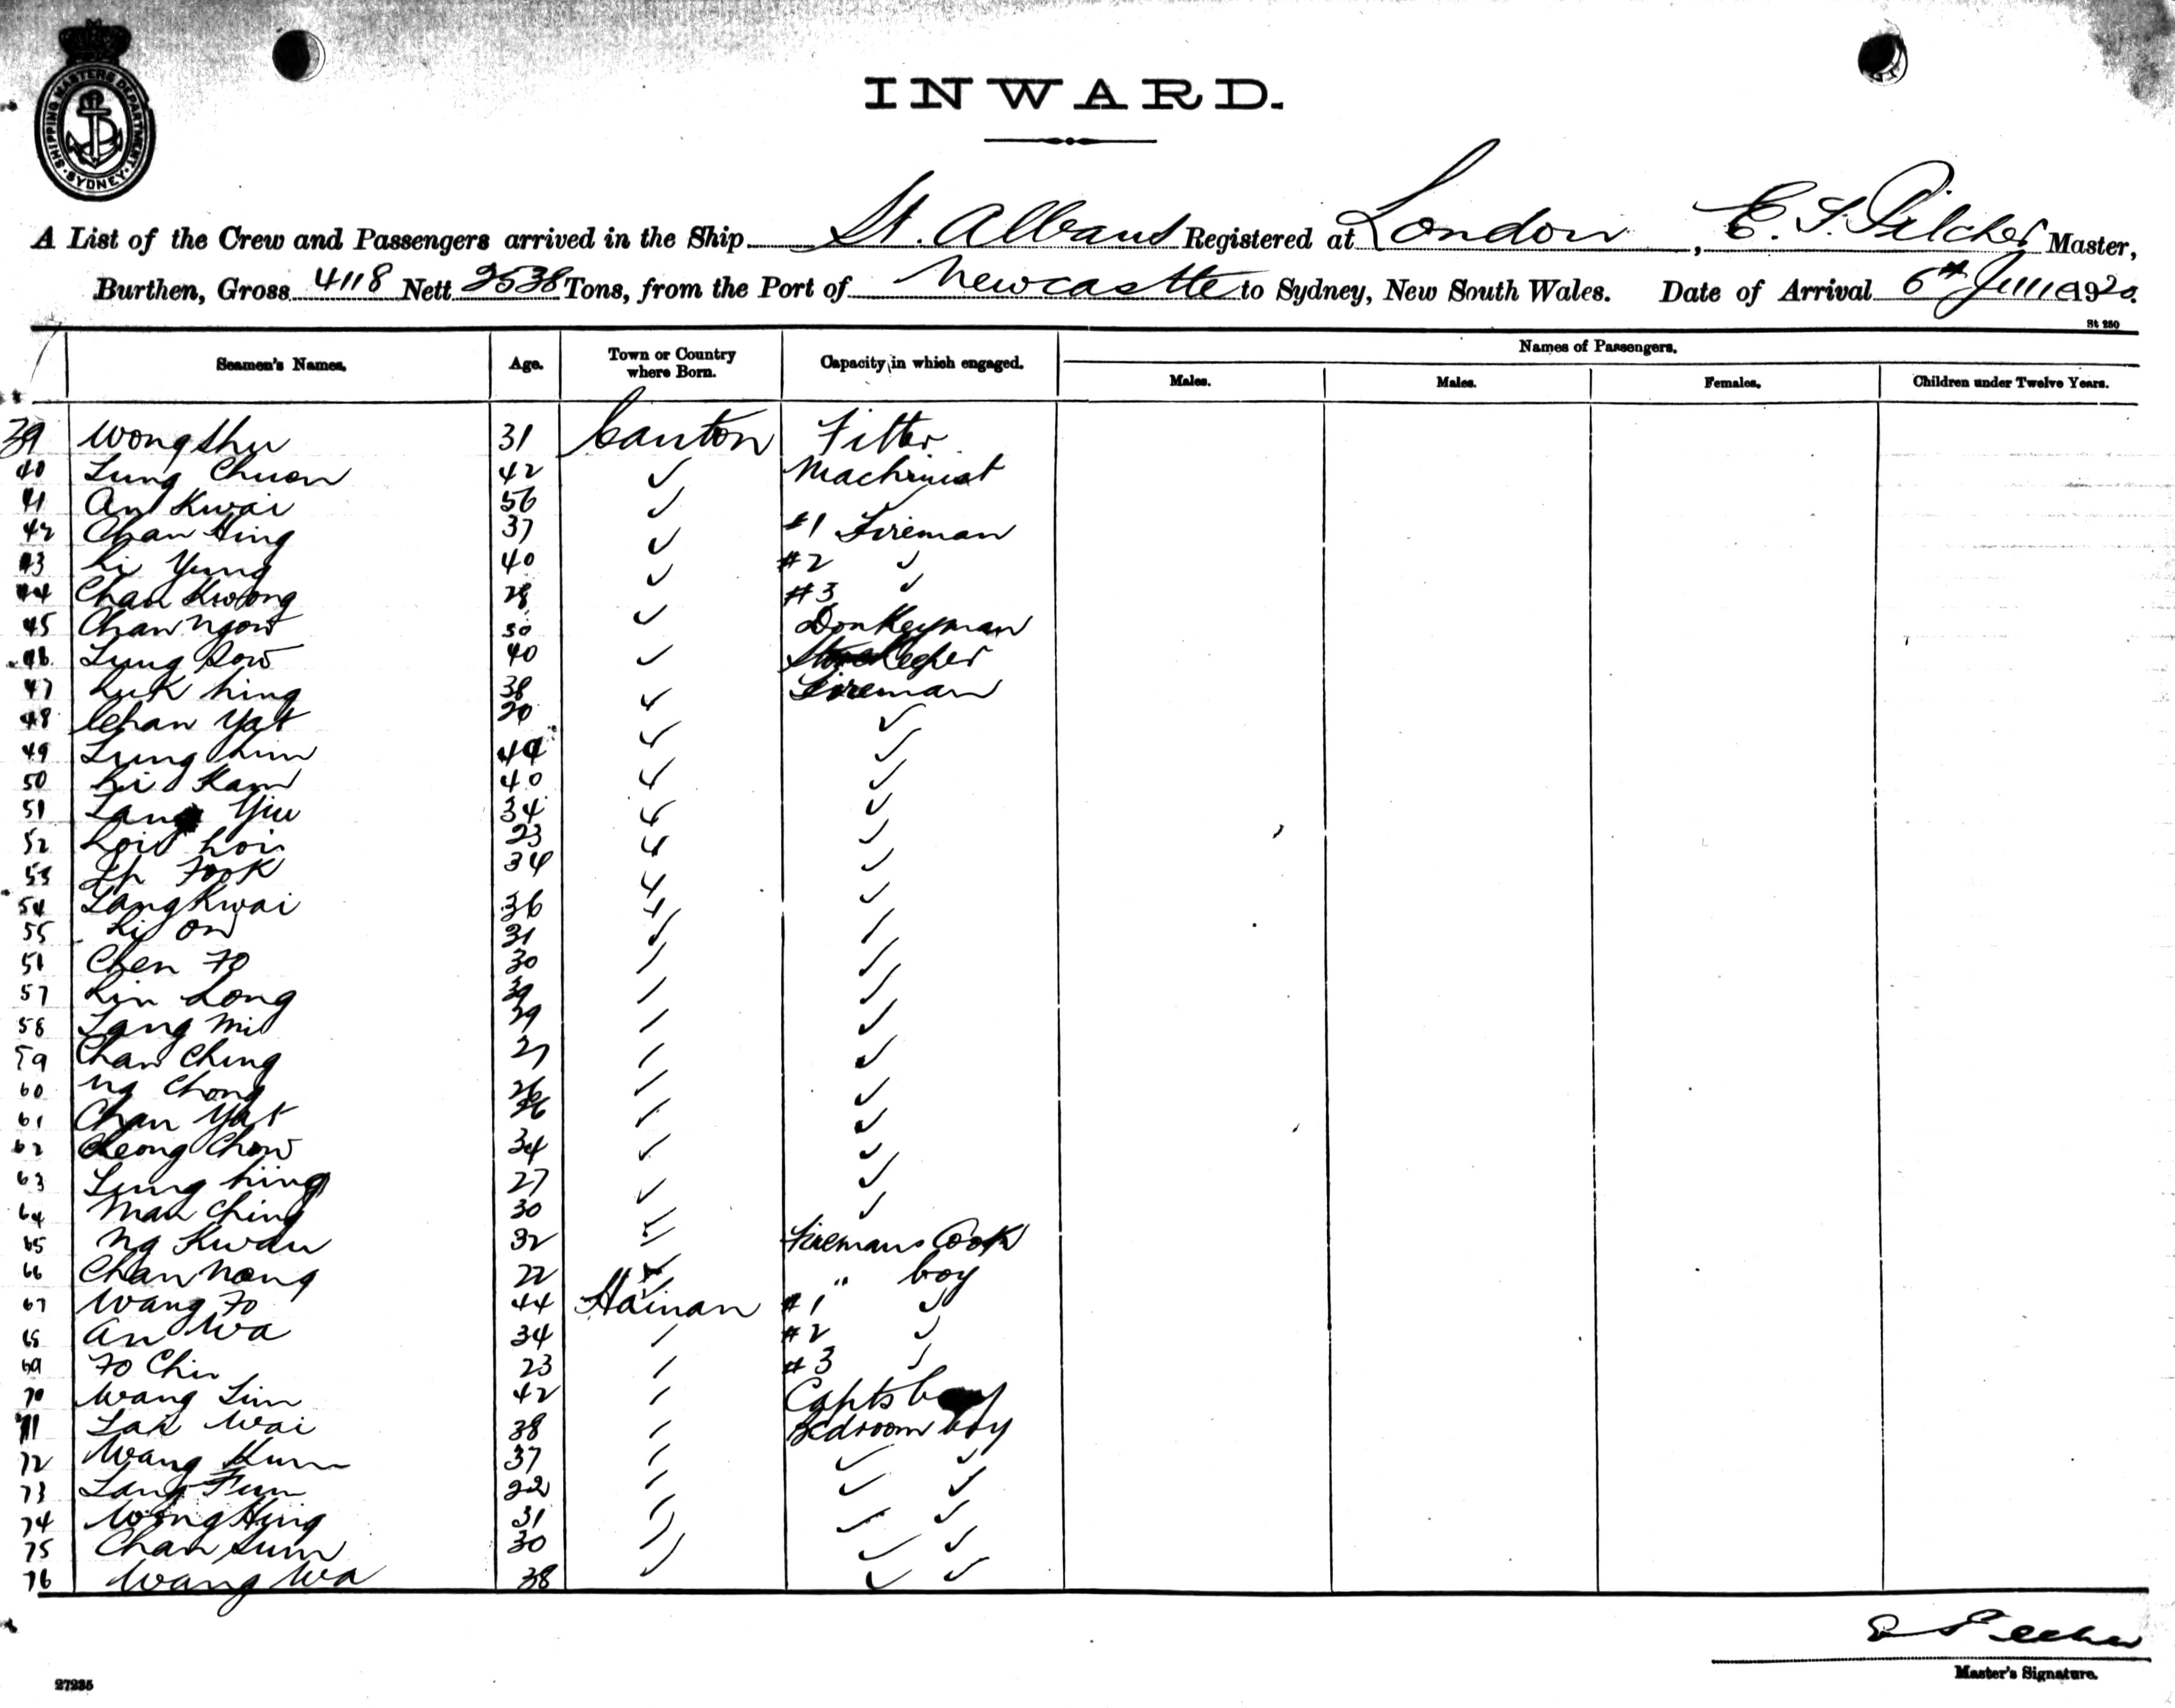 SHIPPING MASTERS DEPARTMENT. SYDNEY.
INWARD.
A List of the Crew and Passengers arrived in the Ship St. Albans Registered at London, E. S. Pilcher Master,
Burthen, Gross 4118 Nett 2538 Tons, from the Port of Newcastle to Sydney, New South Wales. Date of Arrival 6th June 1920.
St 250
Seamen's Names. Age. Town or Country where Born. Capacity in which engaged. Names of Passengers.
Males. Males. Females. Children under Twelve Years.
39 Wong Shu 31 Canton Fitter
40 Lung Chuen 42 ✓ Machinist
41 An Kwai 56 ✓ ✓
42 Chan Hing 37 ✓ #1 Fireman
43 Li Yung 40 ✓ #2 ✓
44 Chan Kwong 28 ✓ #3 ✓
45 Chan Ngow 30 ✓ Donkeyman
46 Lung Sow 40 ✓ Storekeeper
47 Luk hing 38 ✓ Fireman
48 Chan Yat 20 ✓ ✓
49 Lung 44 ✓ ✓
50 Li Kam 40 ✓ ✓
51 Lang Yiu 34 ✓ ✓
52 Loi Loi 23 ✓ ✓
53 Ip Fook 34 ✓ ✓
54 Lang Kwai 36 ✓ ✓
55 Li On 31 ✓ ✓
56 Chen Fo 30 ✓ ✓
57 Lin Long 39 ✓ ✓
58 Lang Mi 29 ✓ ✓
59 Chan Ching 27 ✓ ✓
60 Ng Chong 26 ✓ ✓
61 Chan Yat 36 ✓ ✓
62 Cheong Chow 34 ✓ ✓
63 Lung hing 27 ✓ ✓
64 Man Ching 30 ✓ ✓
65 Ng Kwan 32 ✓ Firemans Cook
66 Chan Nang 22 ✓ " boy
67 Wang Fo 44 Hainan #1 ✓
68 An Wa 34 ✓ #2 ✓
69 Fo Chin 23 ✓ #3 ✓
70 Wang Lim 42 ✓ Capts boy
71 Lak Wai 38 ✓ Bedroom boy
72 Wang Kum 37 ✓ ✓ ✓
73 Lang Fun 22 ✓ ✓ ✓
74 Wong Hing 31 ✓ ✓ ✓
75 Chan Sum 30 ✓ ✓ ✓
76 Wang Wa 38 ✓ ✓ ✓
Master's Signature.
27235